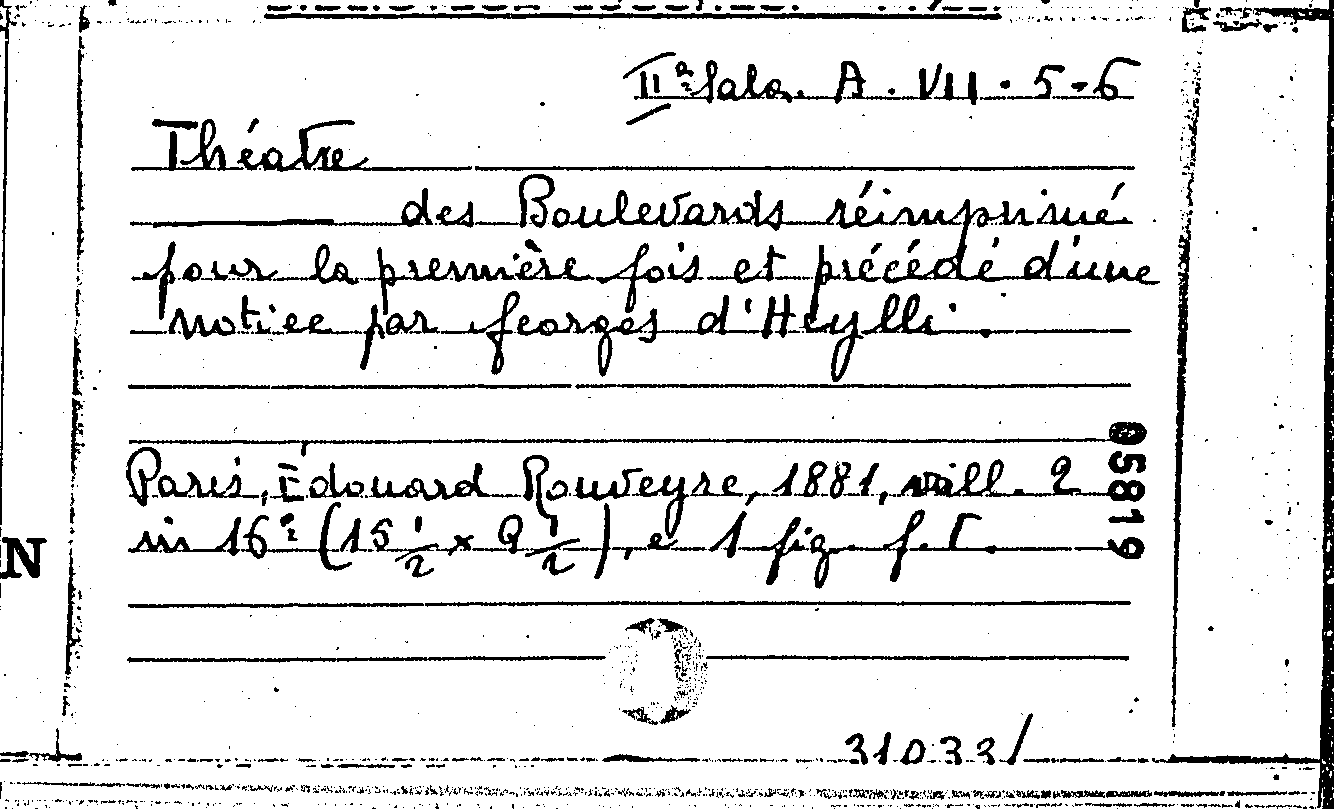 IIª Sala. A. VII. 5-6
Théatre
des Boulevards réimprimé
pour la première fois et précédé d'une
notice par Georges d'Heylli.
Paris, Édouard Rouveyre, 1881, voll. 2
in 16º (15 1/2 x 9 1/2), e 1 fig. f. T.
05819
N
31033/